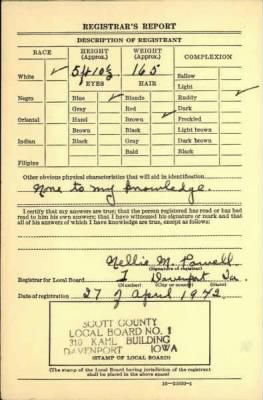 REGISTRAR'S REPORT
DESCRIPTION OF REGISTRANT
RACE HEIGHT (Approx.) WEIGHT (Approx.) COMPLEXION
White ✓ 5 ft 10 ½ 165 Sallow
EYES HAIR Light
Negro Blue ✓ Blonde Ruddy ✓
Gray Red Dark
Oriental Hazel Brown ✓ Freckled
Brown Black Light brown
Indian Black Gray Dark brown
Bald Black
Filipino
Other obvious physical characteristics that will aid in identification
None to my knowledge.
I certify that my answers are true; that the person registered has read or has had
read to him his own answers; that I have witnessed his signature or mark and that
all of his answers of which I have knowledge are true, except as follows:
Nellie M. Powell
(Signature of registrar)
Registrar for Local Board 1 Davenport Ia.
(Number) (City or county) (State)
Date of registration 27 of April 1942
SCOTT COUNTY
LOCAL BOARD NO. 1
319 KAHL BUILDING
DAVENPORT IOWA
(STAMP OF LOCAL BOARD)
(The stamp of the Local Board having jurisdiction of the registrant
shall be placed in the above space)